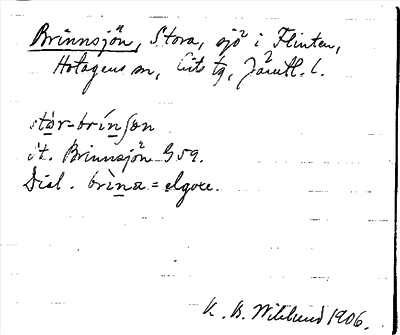 Brinnsjön, Stora, sjö i Flinten,
Hotagens sn, Lits tg, Jämtl. l.
stòr-brínʃøn
St. Brinnsjön G59.
Dial. brìna = elgoxe.
K. B. Wiklund 1906.